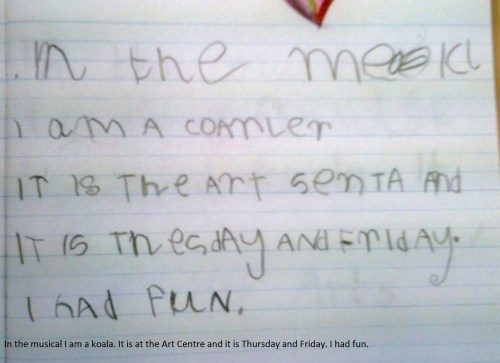 In the meskl
I am A coAmler
IT IS The ArT senTA And
IT IS ThesdAy And FridAy.
I hAd FUN.
In the musical I am a koala. It is at the Art Centre and it is Thursday and Friday. I had fun.